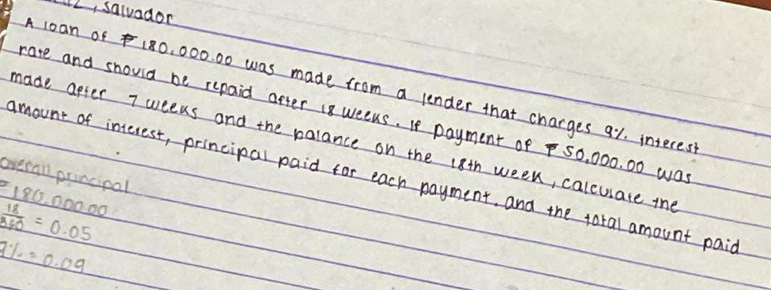 , Salvador
A loan of ₱180,000.00 was made from a lender that charges 9% interest
rate and should be repaid after 18 weeks. If payment of ₱50,000.00 was
made after 7 weeks and the balance on the 18th week, calculate the
amount of interest, principal paid for each payment, and the total amount paid
overall principal
180,000.00
18/360 = 0.05
9% = 0.09